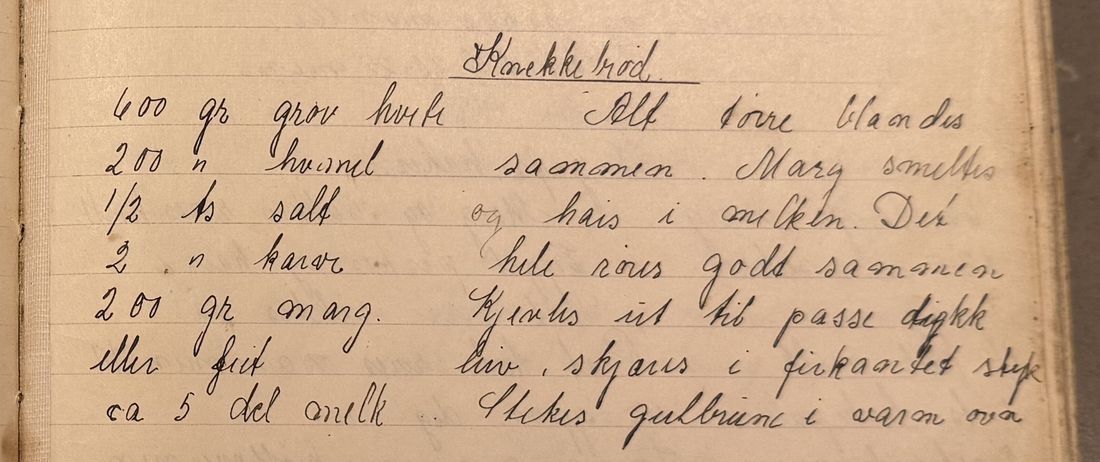 Knekkebrød.
600 gr grov hvete Alt tørre blandes
200 " hvemel sammen. Marg smeltes
1/2 ts salt og hais i melken. Det
2 " karve hele røres godt sammen
200 gr marg. Kjevles ut til passe tykk
eller fett leiv, skjæres i firkantet styk
ca 5 del melk Stekes gulbrune i varm ovn